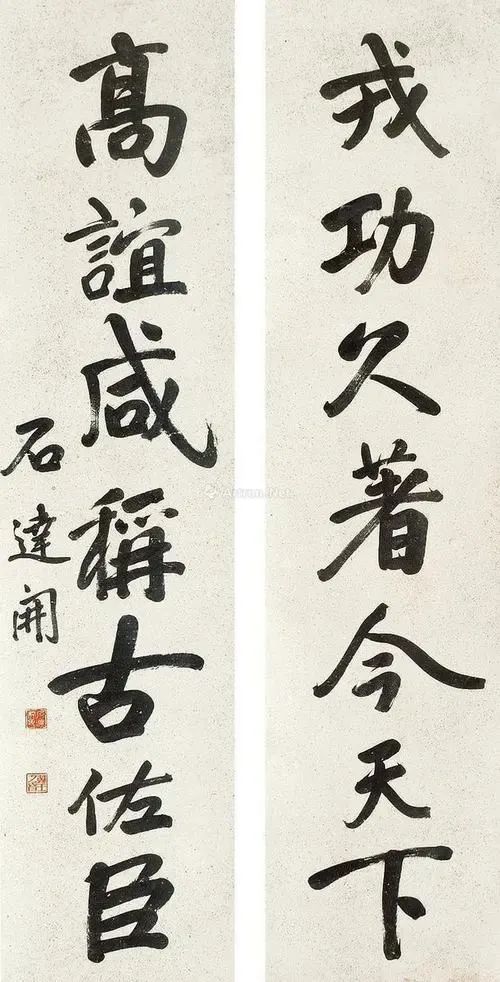 戎功久著今天下
高誼咸稱古佐臣
石達開
Artron.Net